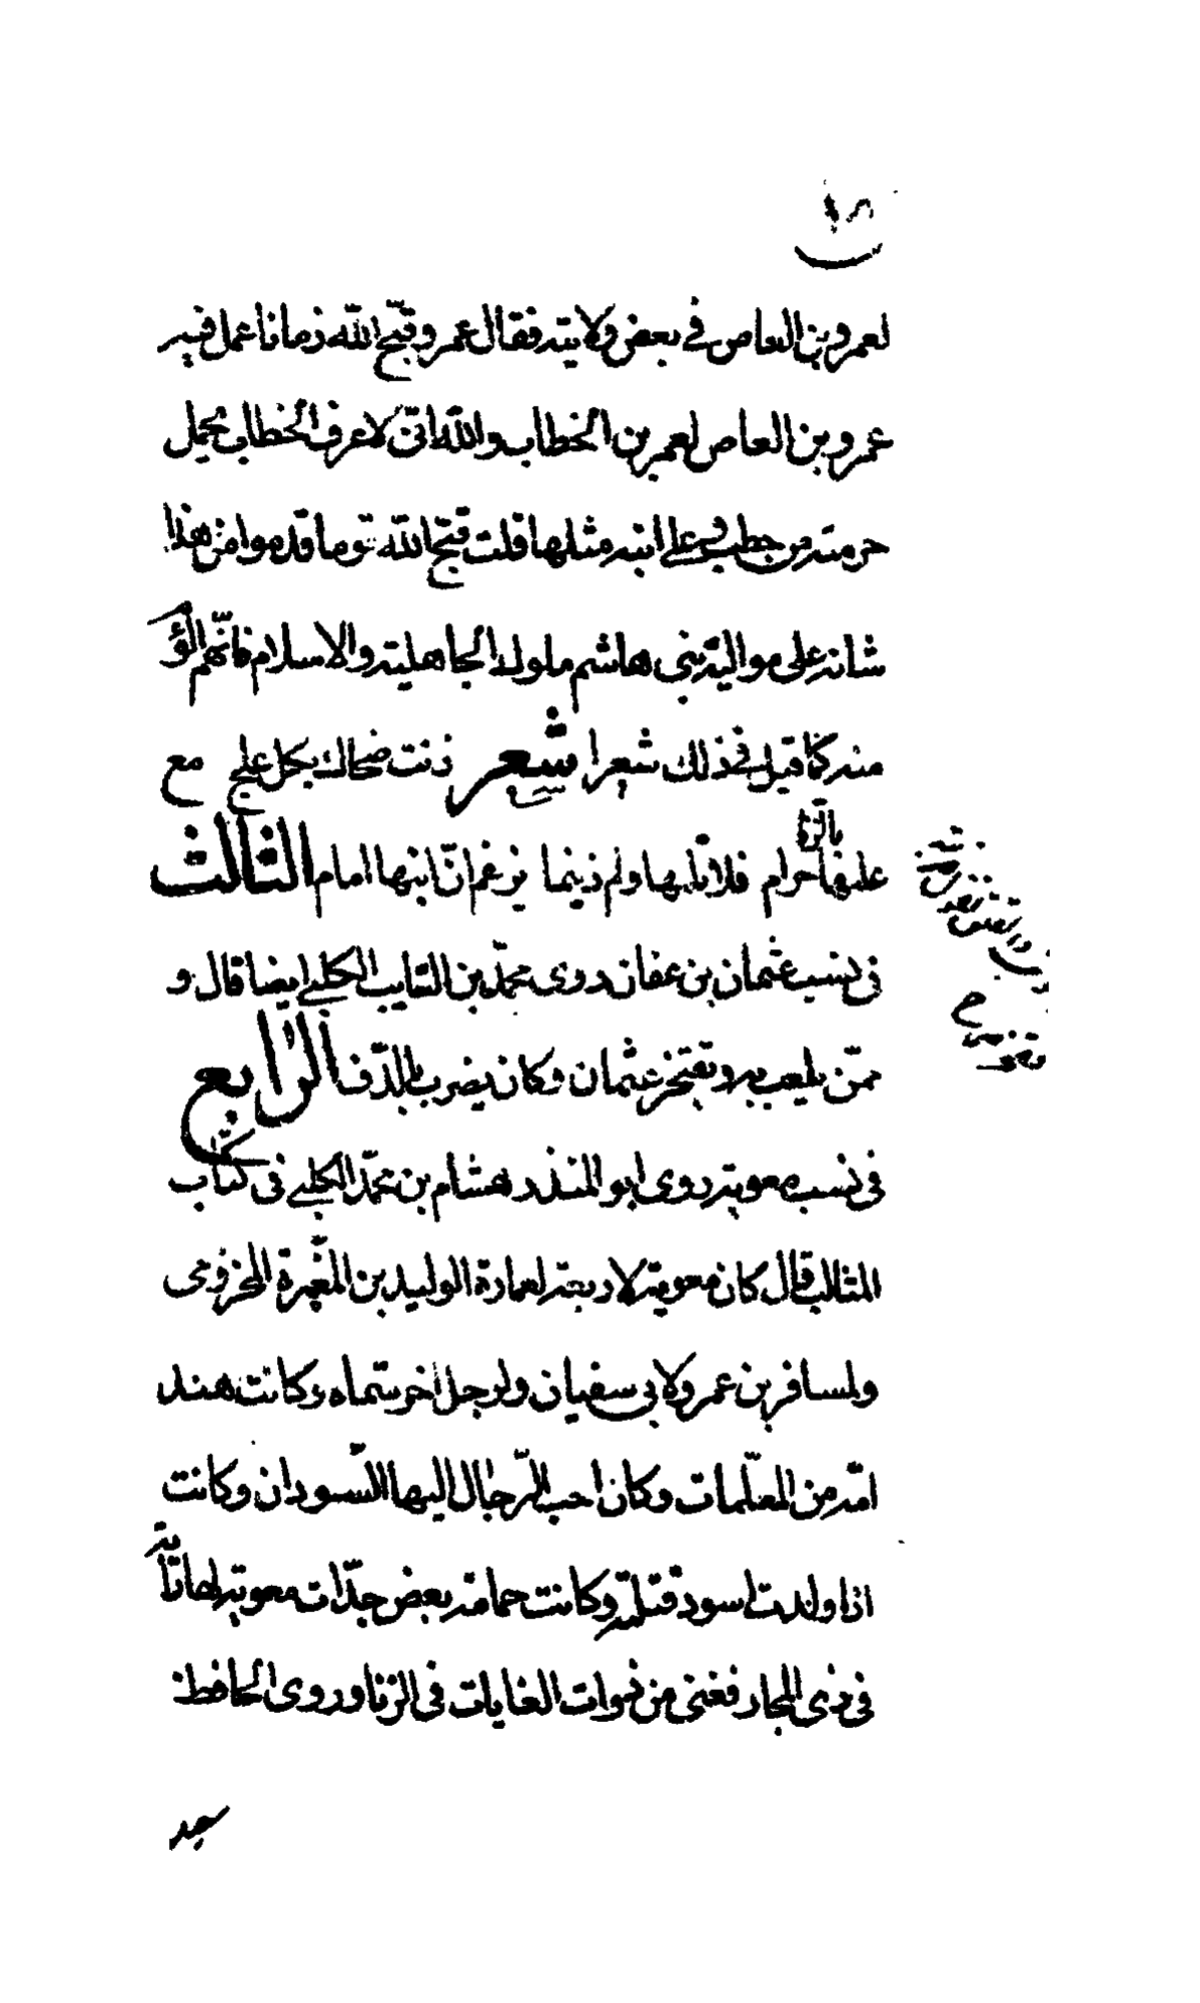 ١٨
لعمرو بن العاص في بعض ولايته فقال عمرو قبّح الله زمانا عمل فيه
عمرو بن العاص لعمر بن الخطاب والله انّى لاعرف الخطاب يحمل
حزمته من حطب وعلى ابنه مثلها قلت قبّح الله قوما قدموا من هذا
شانه على مواليه بنى هاشم ملوك الجاهلية والاسلام فانّهم الؤ
منه كما قيل فى ذلك شعرا شعر زنت ضحاك بكل علج مع
علمها بالزنا حرام فلا تلمها ولم زنيما يزعم انّ ابنها امام الثالث
فى نسب عثمان بن عفان روى محمّد بن السّايب الكلبي ايضا قال و
ممّن يلعب به ويفتخر عثمان وكان يضرب بالدّف الرّابع
فى نسب معوية روى ابو المنذر هشام بن محمّد الكلبي فى كتاب
المثالب قال كان معوية لاربعة لعمارة الوليد بن المغيرة المخزومى
ولمسافر بن عمرو ولابى سفيان ولرجل اخر سمّاه وكانت هند
امّه من المعلّمات وكان احب الرّجال اليها السّودان وكانت
اذا ولدت اسود قتلته وكانت حمامة بعض جدّات معوية لها راية
فى ذى المجاز فغنى من ذوات الغايات فى الزنا وروى الحافظ